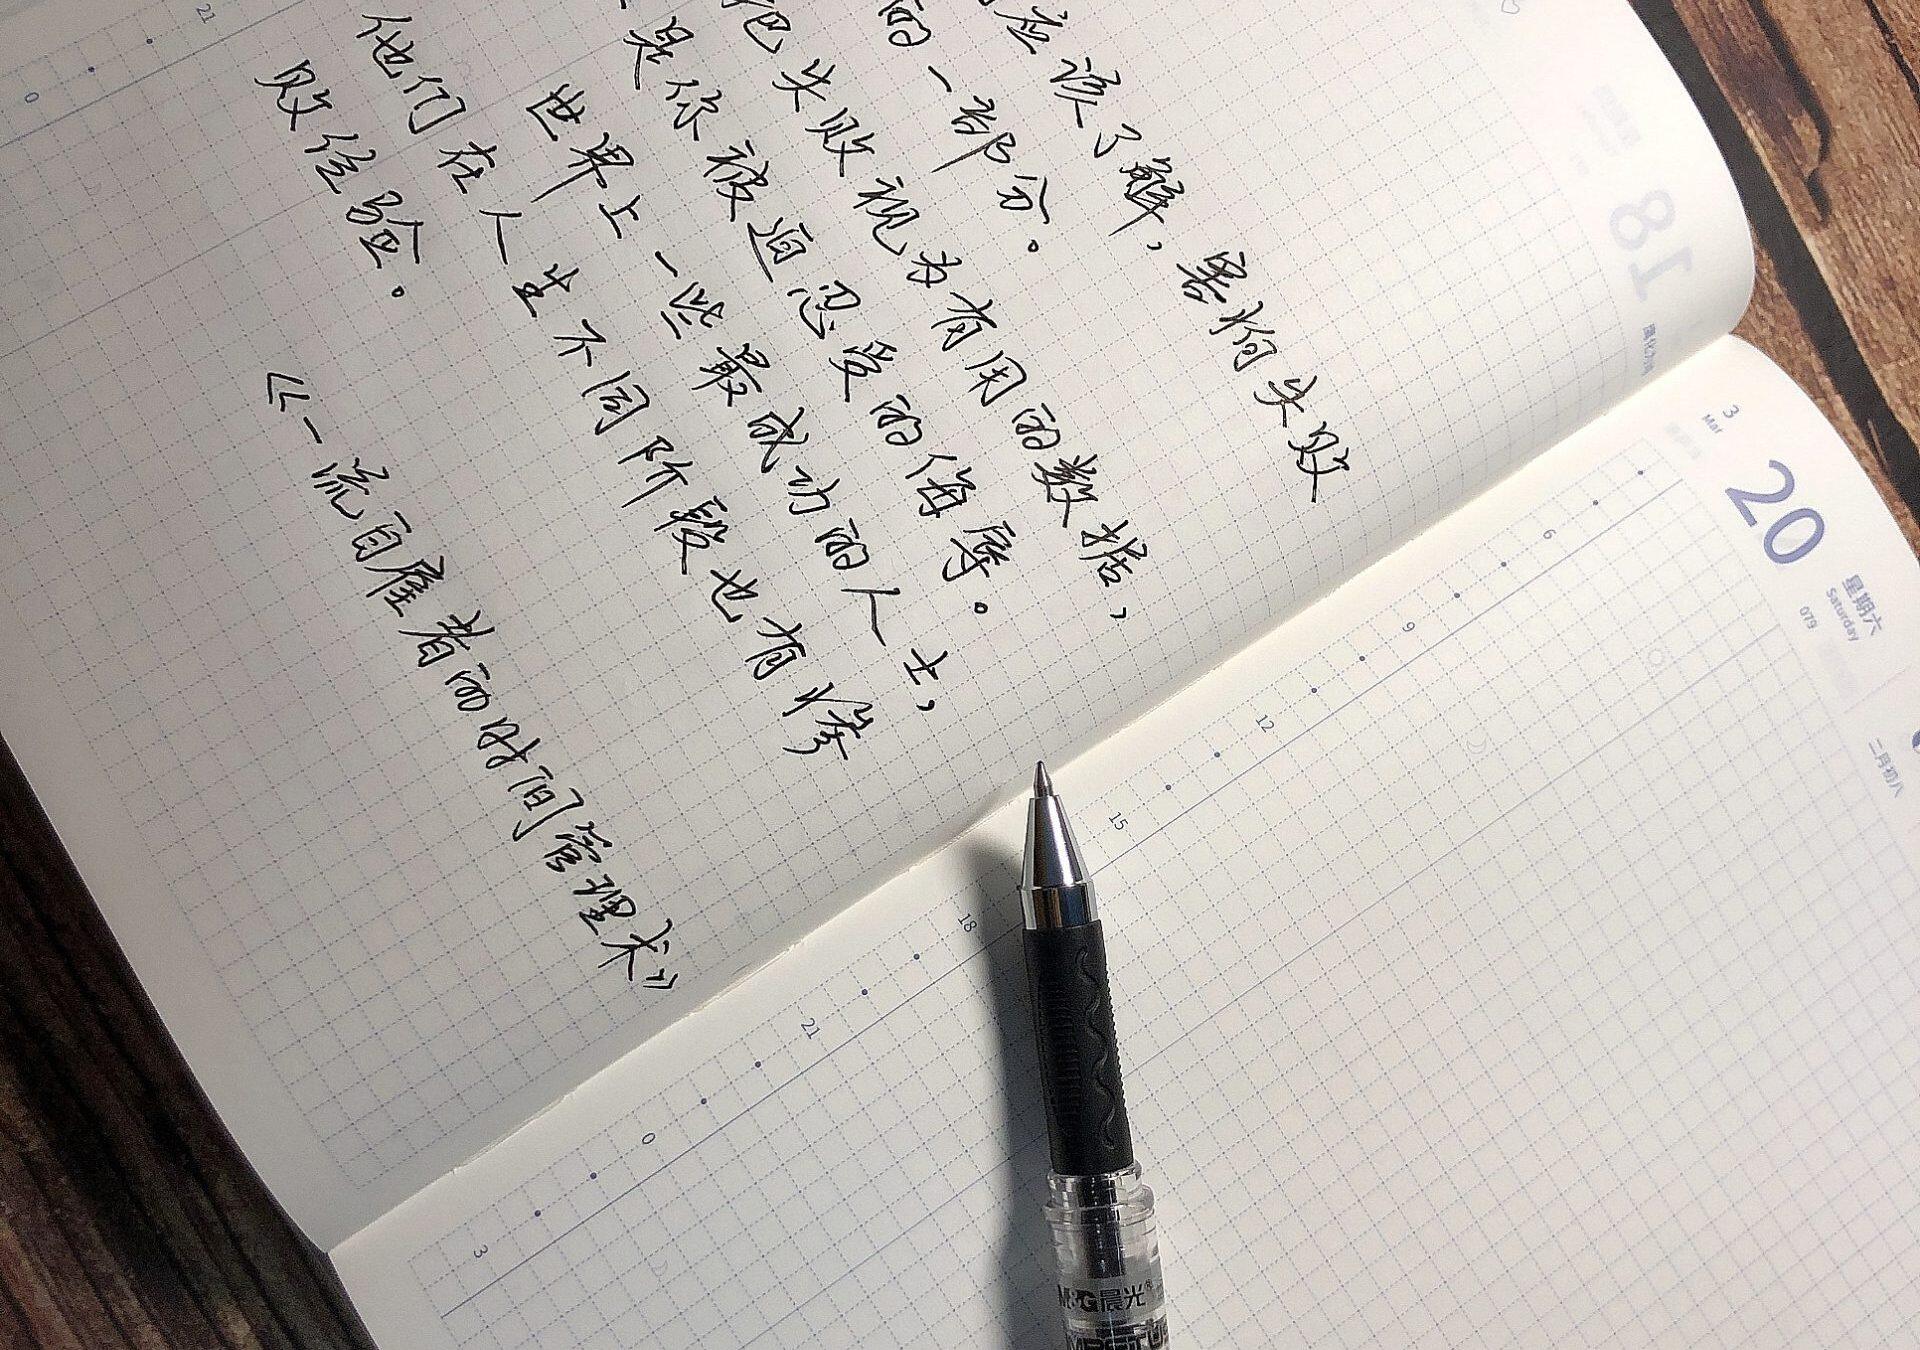 应该了解，害怕失败
的一部分。
把失败视为有用的数据，
是你被迫忍受的侮辱。
世界上一些最成功的人士，
他们在人生不同阶段也有惨
败体验。
《一流自雇者的时间管理术》
21
0
3
Mar
20
星期六
Saturday
079
二月初八
6
9
12
15
18
21
0
3
M&G晨光®